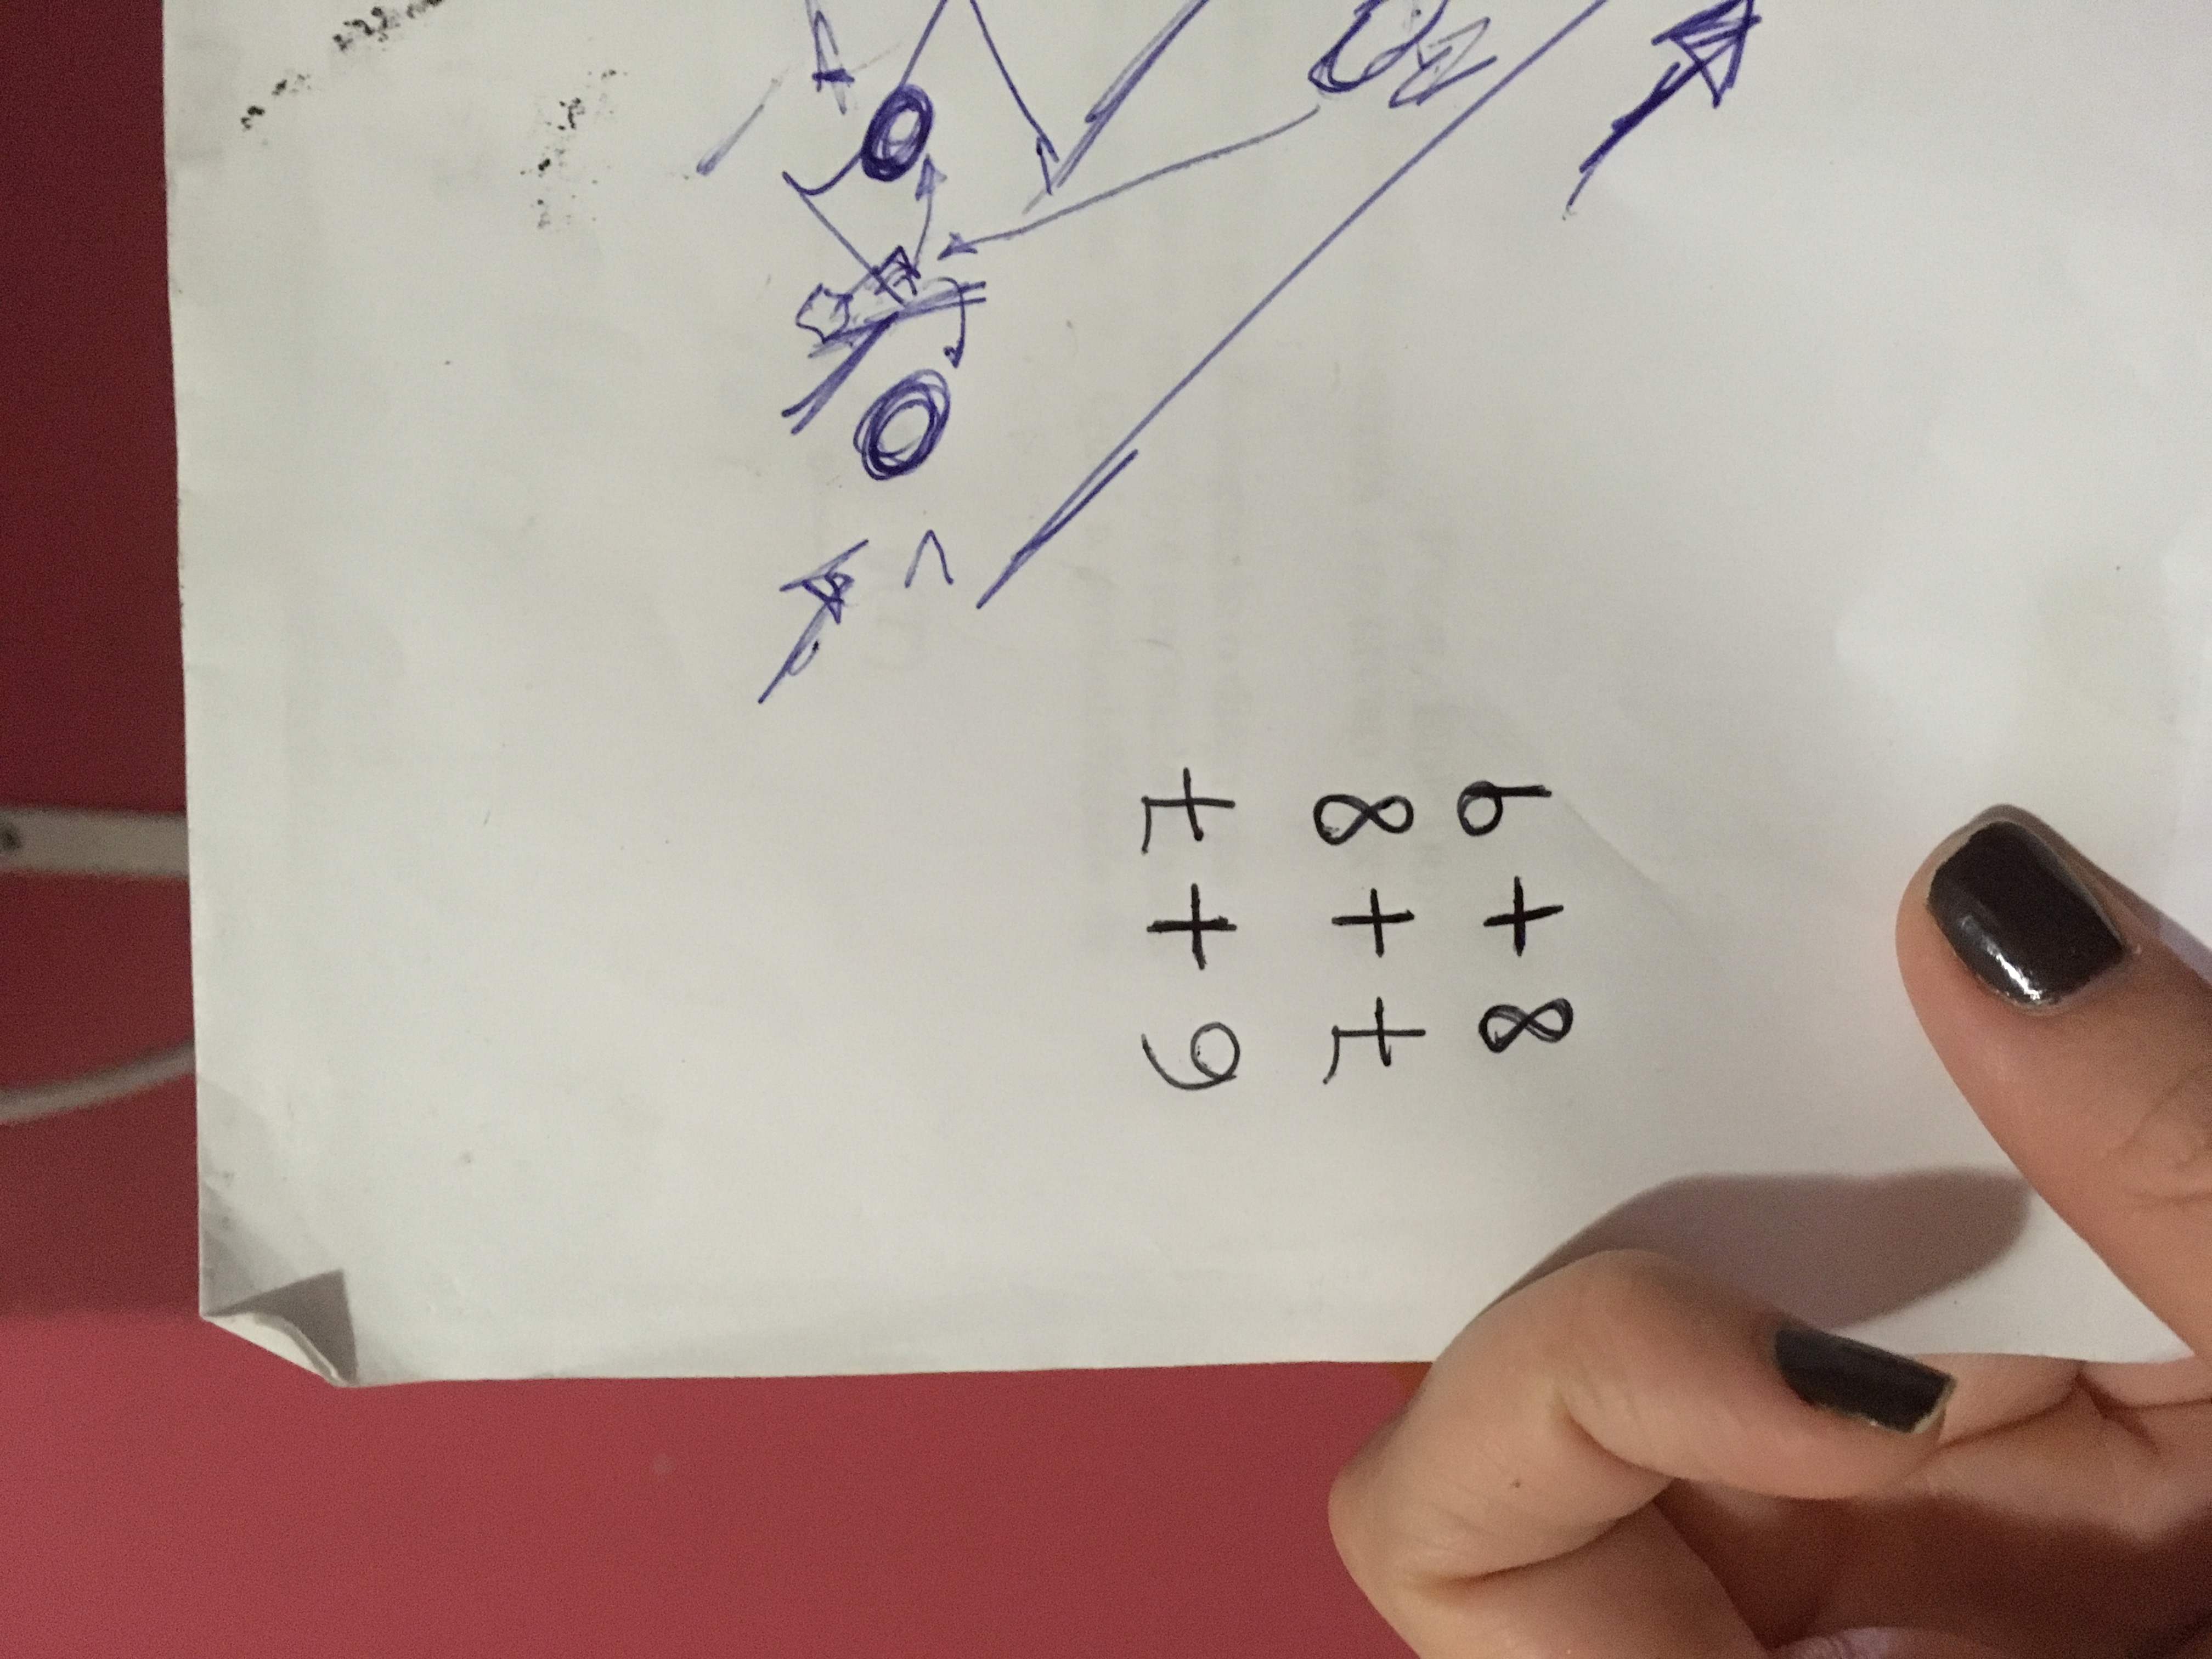 6 + 7
7 + 8
8 + 9